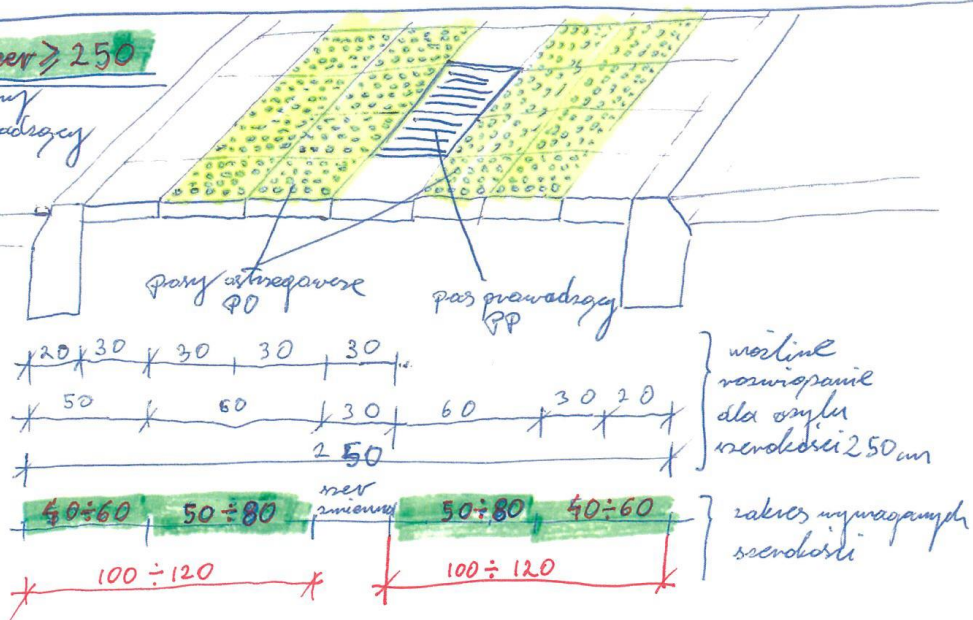 ≥ 250
pasy ostrzegawcze
PO
pas prowadzący
PP
20 30 30 30 30
50 60 30 60 30 20
250
możliwe
rozwiązanie
dla azylu
szerokości 250 cm
40÷60 50÷80 szer 50÷80 40÷60
zmienna
zakres wymaganych
szerokości
100÷120 100÷120